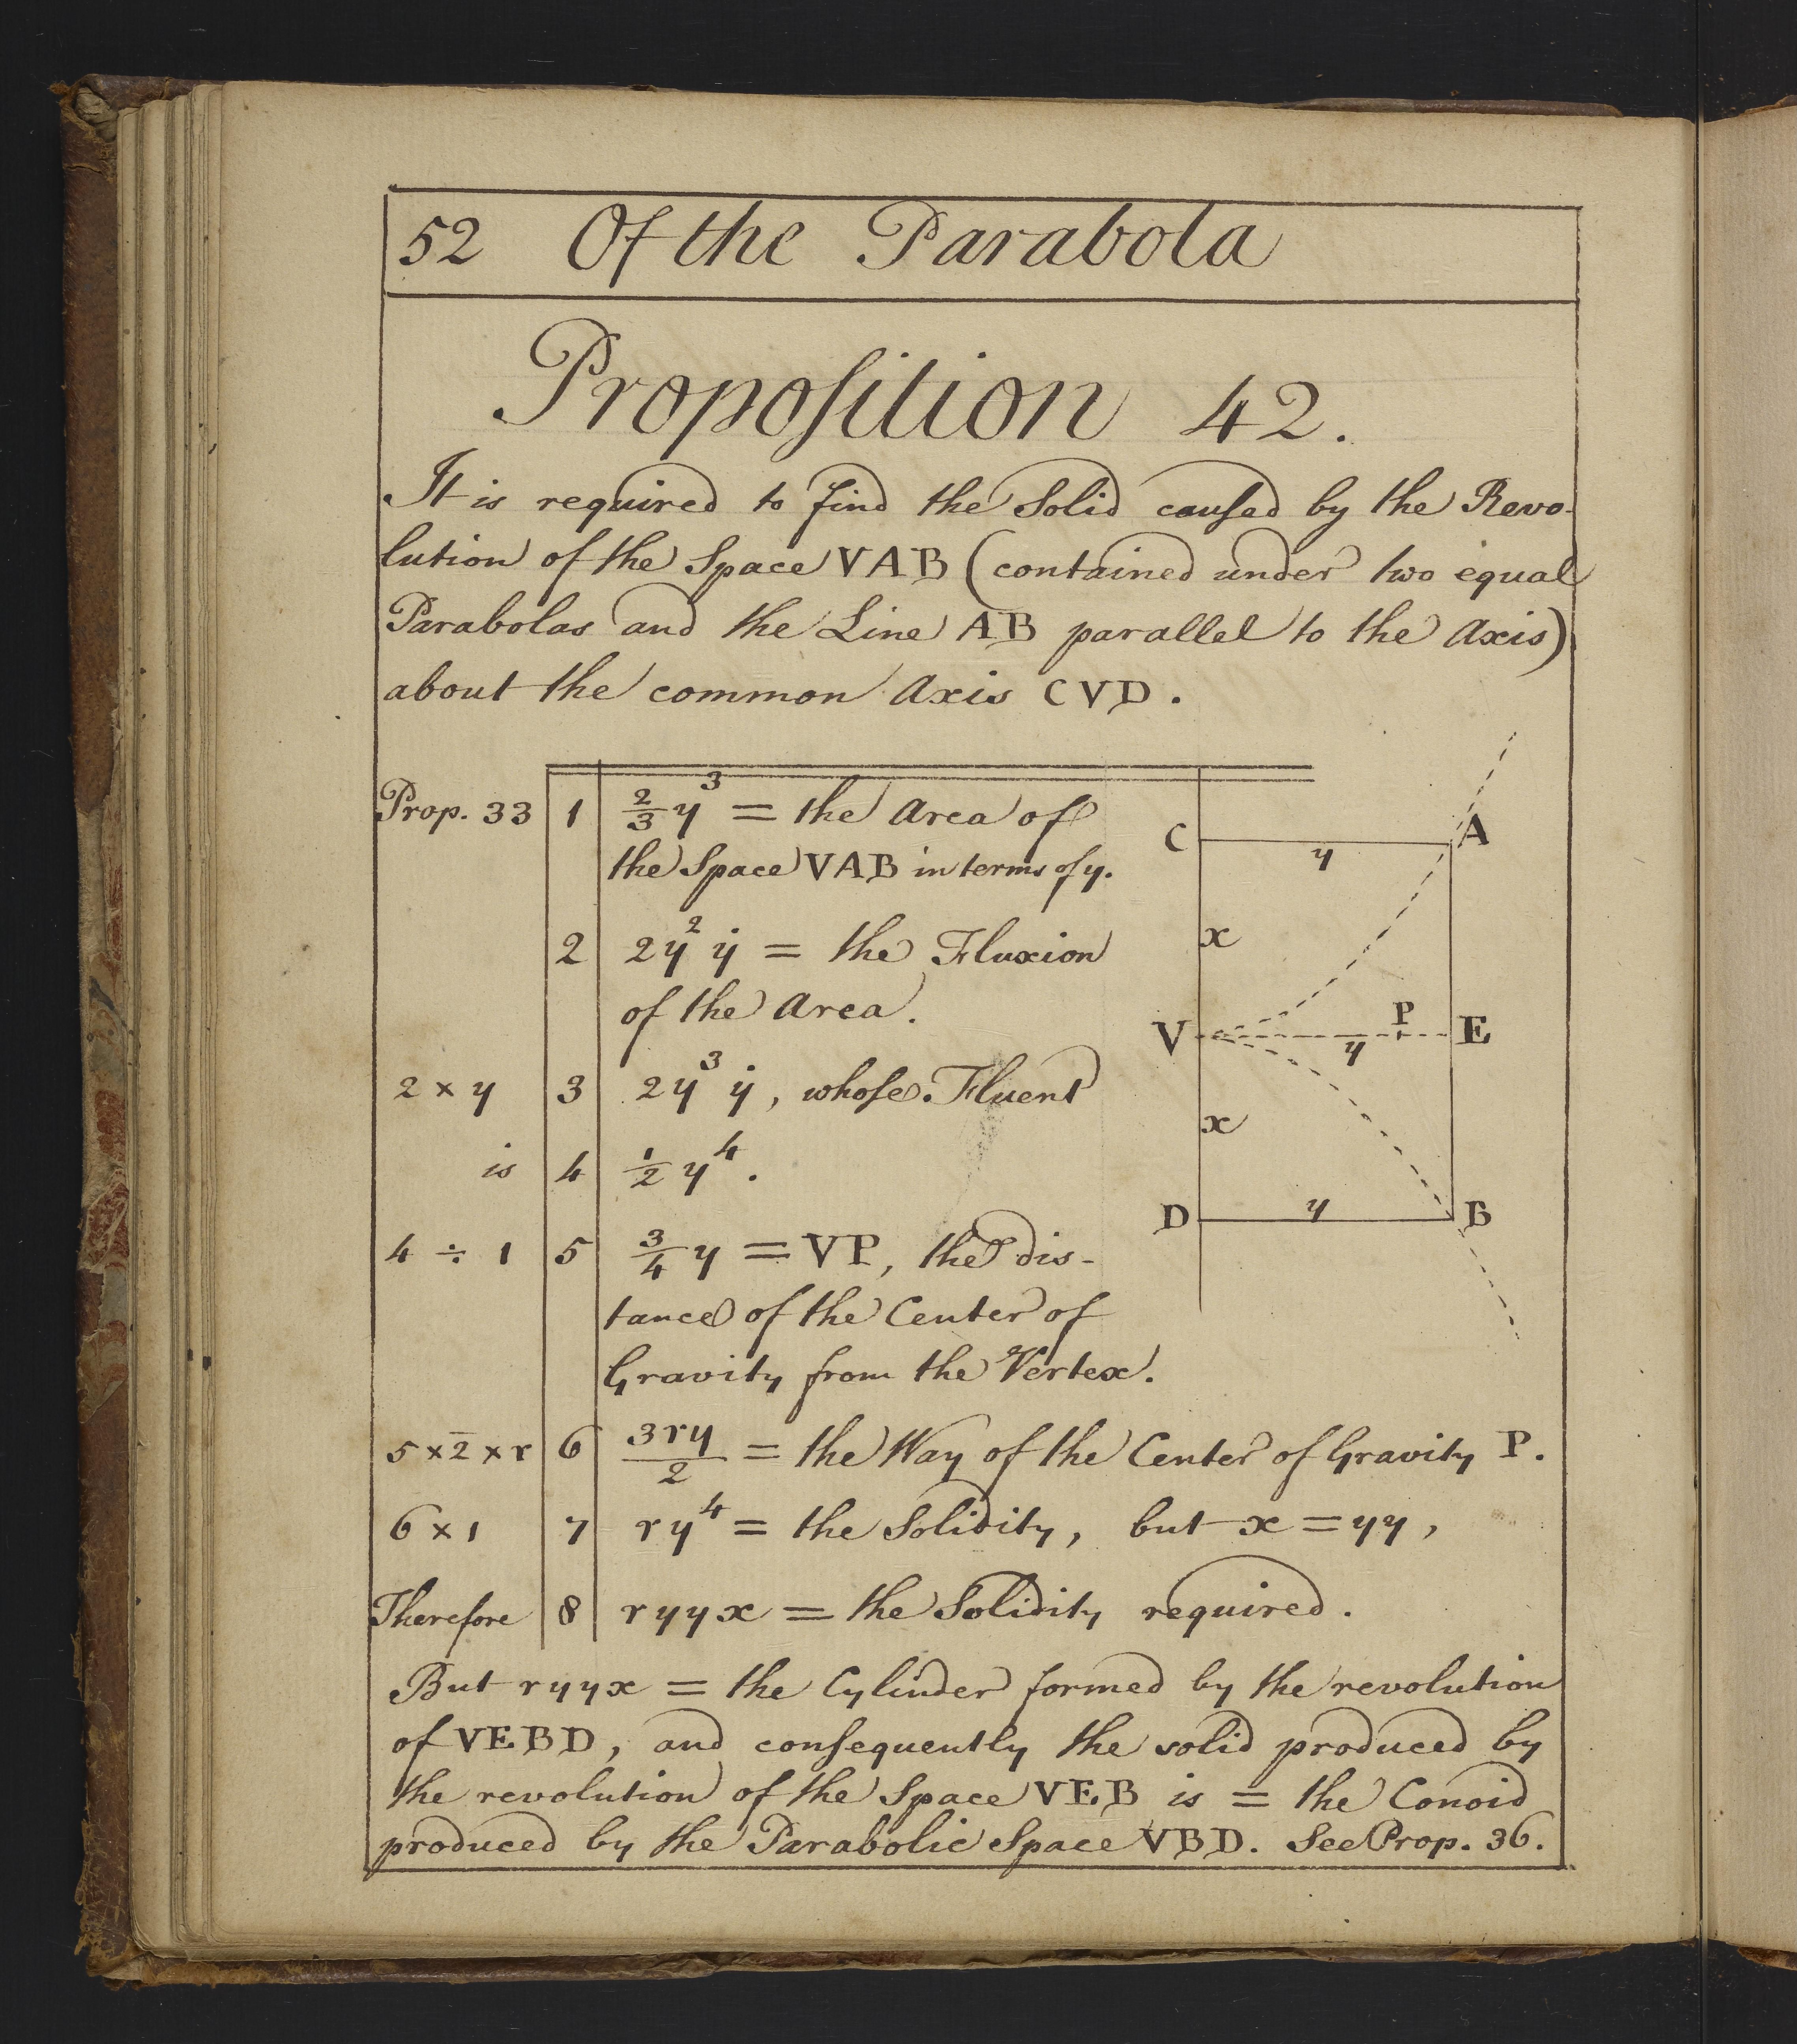 52 Of the Parabola
Proposition 42.
It is required to find the Solid caused by the Revo-
lution of the Space VAB (contained under two equal
Parabolas and the Line AB parallel to the Axis)
about the common Axis CVD.
Prop. 33 | 1 | 2/3 y³ = the Area of
the Space VAB in terms of y.
2 | 2y² ẏ = the Fluxion
of the Area.
2 × y | 3 | 2y³ ẏ, whose Fluent
is | 4 | 1/2 y⁴.
4 ÷ 1 | 5 | 3/4 y = VP, the dis-
tance of the Center of
Gravity from the Vertex.
5 × 2̅ × r | 6 | 3ry/2 = the Way of the Center of Gravity P.
6 × 1 | 7 | ry⁴ = the Solidity, but x = yy,
Therefore | 8 | ryyx = the Solidity required.
But ryyx = the Cylinder formed by the revolution
of VEBD, and consequently the solid produced by
the revolution of the Space VEB is = the Conoid
produced by the Parabolic Space VBD. See Prop. 36.
C y A
x
V y P E
x
D y B